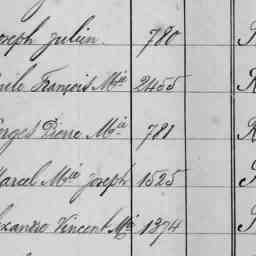 oseph Julien 780
mile François Mie 2455 R
orges Pierre Mie 781 R
Marcel Mie Joseph 1525
exandre Vincent Mie 1374